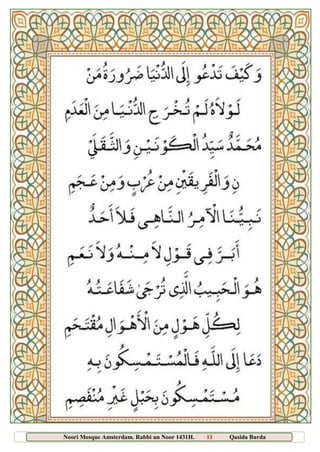 وَكَيْفَ تَدْعُو إِلَى الدُّنْيَا ضَرُورَةُ مَنْ
لَوْلَاهُ لَمْ تُخْرَجِ الدُّنْيَا مِنَ الْعَدَمِ
مُحَمَّدٌ سَيِّدُ الْكَوْنَيْنِ وَالثَّقَلَيْ
نِ وَالْفَرِيقَيْنِ مِنْ عُرْبٍ وَمِنْ عَجَمِ
نَبِيُّنَا الْآمِرُ النَّاهِي فَلَا أَحَدٌ
أَبَرَّ فِي قَوْلِ لَا مِنْهُ وَلَا نَعَمِ
هُوَ الْحَبِيبُ الَّذِي تُرْجَى شَفَاعَتُهُ
لِكُلِّ هَوْلٍ مِنَ الْأَهْوَالِ مُقْتَحَمِ
دَعَا إِلَى اللهِ فَالْمُسْتَمْسِكُونَ بِهِ
مُسْتَمْسِكُونَ بِحَبْلٍ غَيْرِ مُنْفَصِمِ
Noori Mosque Amsterdam. Rabbi un Noor 1431H. 11 Qasida Burda